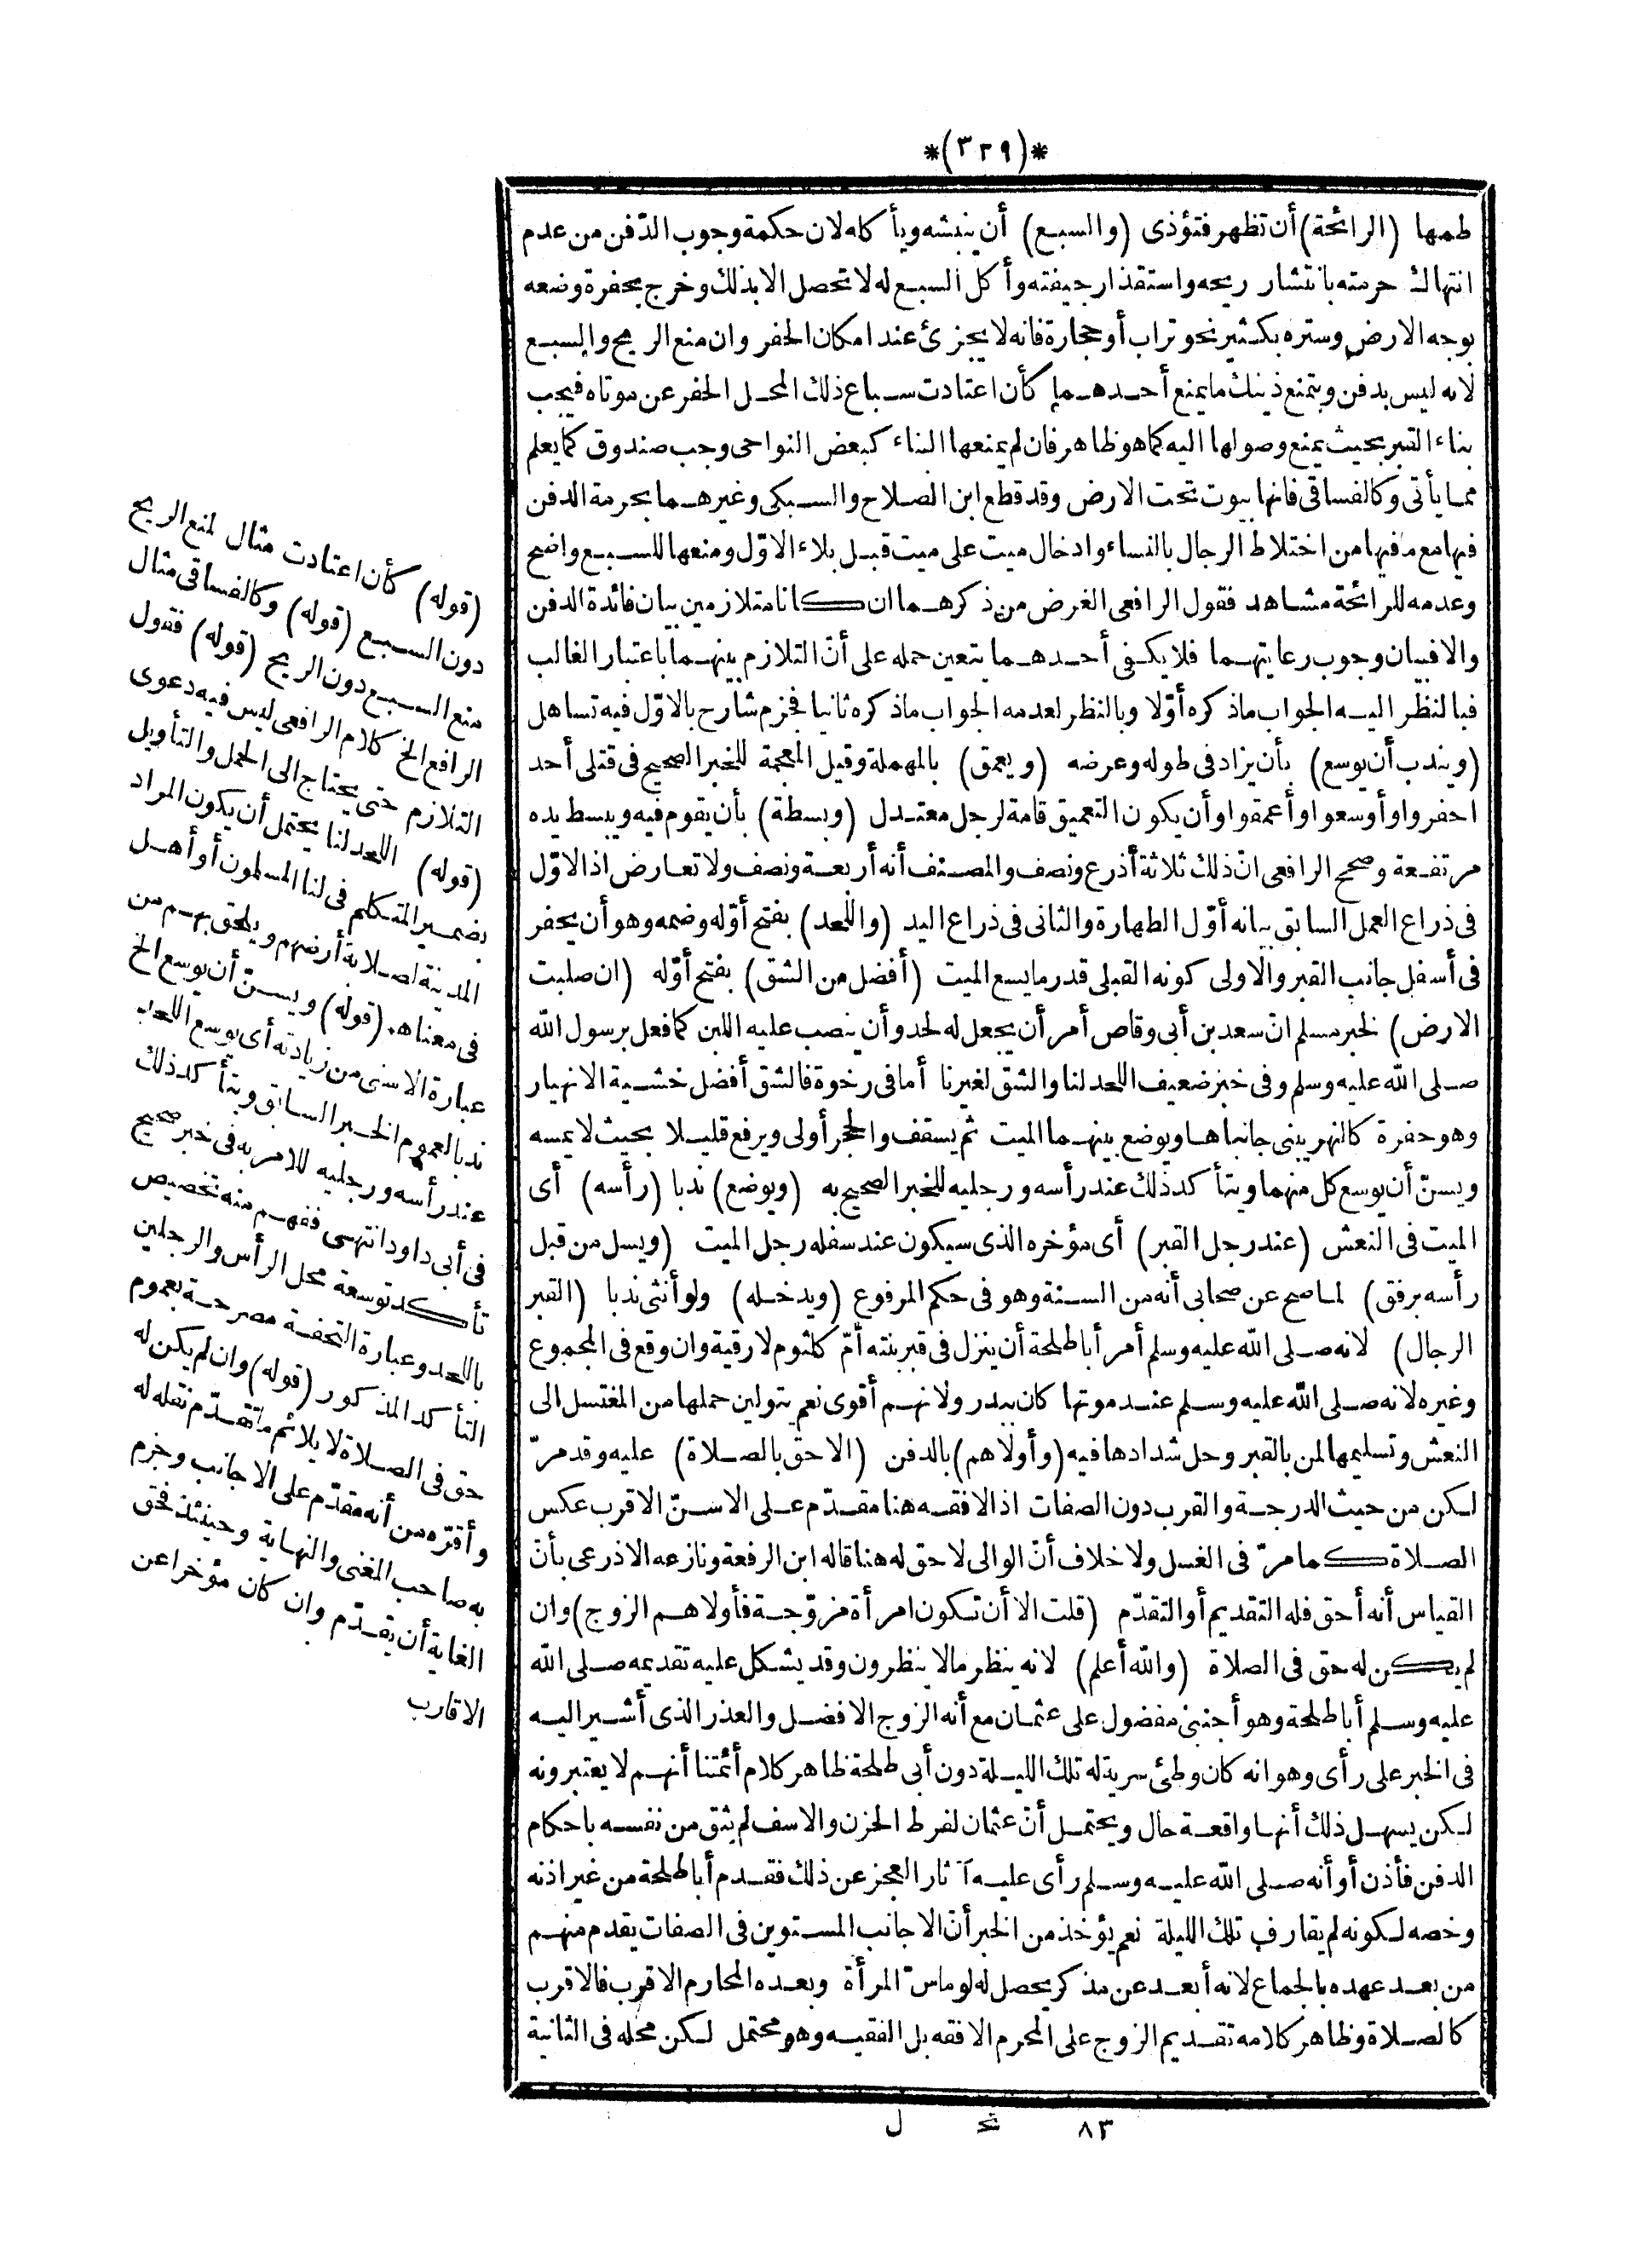 *(٣٢٩)*
طمها (الرائحة) أن تظهر فتؤذى (والسبع) أن ينبشه ويأكله لان حكمة وجوب الدّفن من عدم
انتهاك حرمته بانتشار ريحه واستقذار جيفته وأكل السبع له لا تحصل الا بذلك وخرج بحفرة وضعه
بوجه الارض وستره بكثير نحو تراب أو حجارة فانه لا يجزئ عند امكان الحفر وان منع الريح والسبع
لانه ليس بدفن وبتمنع ذينك ما يمنع أحدهما كأن اعتادت سباع ذلك المحل الحفر عن موتاه فيجب
بناء القبر بحيث يمنع وصولها اليه كما هو ظاهر فان لم يمنعها البناء كبعض النواحى وجب صندوق كما يعلم
مما يأتى وكالفساقى فانها بيوت تحت الارض وقد قطع ابن الصلاح والسبكى وغيرهما بحرمة الدفن
فيها مع ما فيها من اختلاط الرجال بالنساء وادخال ميت على ميت قبل بلاء الاوّل ومنعها للسبع واضح
وعدمه للرائحة مشاهد فقول الرافعى الغرض من ذكرهما ان كانا متلازمين بيان فائدة الدفن
والا فبيان وجوب رعايتهما فلا يكفى أحدهما يتعين حمله على أنّ التلازم بينهما باعتبار الغالب
فبالنظر اليه الجواب ماذكره أوّلا وبالنظر لعدمه الجواب ماذكره ثانيا فجزم شارح بالاوّل فيه تساهل
(ويندب أن يوسع) بأن يزاد فى طوله وعرضه (ويعمق) بالمهملة وقيل المعجمة للخبر الصحيح فى قتلى أحد
احفروا وأوسعوا وأعمقوا وأن يكون التعميق قامة لرجل معتدل (وبسطة) بأن يقوم فيه ويبسط يده
مرتفعة وصحح الرافعى انّ ذلك ثلاثة أذرع ونصف والمصنف أنه أربعة ونصف ولا تعارض اذ الاوّل
فى ذراع العمل السابق بيانه أوّل الطهارة والثانى فى ذراع اليد (واللحد) بفتح أوّله وضمه وهو أن يحفر
فى أسفل جانب القبر والاولى كونه القبلى قدر ما يسع الميت (أفضل من الشق) بفتح أوّله (ان صلبت
الارض) لخبر مسلم انّ سعد بن أبى وقاص أمر أن يجعل له لحد وأن ينصب عليه اللبن كما فعل برسول الله
صلى الله عليه وسلم وفى خبر ضعيف اللحد لنا والشق لغيرنا أما فى رخوة فالشق أفضل خشية الانهيار
وهو حفرة كالنهر يبنى جانباها ويوضع بينهما الميت ثم يسقف والحجر أولى ويرفع قليلا بحيث لا يمسه
ويسنّ أن يوسع كل منهما ويتأكد ذلك عند رأسه ورجليه للخبر الصحيح به (ويوضع) ندبا (رأسه) أى
الميت فى النعش (عند رجل القبر) أى مؤخره الذى سيكون عند سفله رجل الميت (ويسل من قبل
رأسه برفق) لما صح عن صحابى أنه من السنة وهو فى حكم المرفوع (ويدخله) ولو أنثى ندبا (القبر
الرجال) لانه صلى الله عليه وسلم أمر أبا طلحة أن ينزل فى قبر بنته أمّ كلثوم لا رقية وان وقع فى المجموع
وغيره لانه صلى الله عليه وسلم عند موتها كان ببدر ولانهم أقوى نعم يتولين حملها من المغتسل الى
النعش وتسليمها لمن بالقبر وحل شدادها فيه (وأولاهم) بالدفن (الاحق بالصلاة) عليه وقد مرّ
لكن من حيث الدرجة والقرب دون الصفات اذ الافقه هنا مقدّم على الاسنّ الاقرب عكس
الصلاة كما مرّ فى الغسل ولا خلاف أنّ الوالى لا حق له هنا قاله ابن الرفعة ونازعه الاذرعى بأنّ
القياس أنه أحق فله التقديم أو التقدّم (قلت الا أن تكون امرأة مزوّجة فأولاهم الزوج) وان
لم يكن له حق فى الصلاة (والله أعلم) لانه ينظر ما لا ينظرون وقد يشكل عليه تقديمه صلى الله
عليه وسلم أبا طلحة وهو أجنبى مفضول على عثمان مع أنه الزوج الافضل والعذر الذى أشير اليه
فى الخبر على رأى وهو انه كان وطئ سرية له تلك الليلة دون أبى طلحة ظاهر كلام أئمتنا أنهم لا يعتبرونه
لكن يسهل ذلك أنها واقعة حال ويحتمل أنّ عثمان لفرط الحزن والاسف لم يثق من نفسه باحكام
الدفن فأذن أو أنه صلى الله عليه وسلم رأى عليه آثار العجز عن ذلك فقدم أبا طلحة من غير اذنه
وخصه لكونه لم يقارف تلك الليلة نعم يؤخذ من الخبر أنّ الاجانب المستوين فى الصفات يقدم منهم
من بعد عهده بالجماع لانه أبعد عن مذكر يحصل له لو ماسّ المرأة وبعده المحارم الاقرب فالاقرب
كالصلاة وظاهر كلامه تقديم الزوج على المحرم الافقه بل الفقيه وهو محتمل لكن محله فى الثانية
(قوله) كأن اعتادت مثال لمنع الريح
دون السبع (قوله) وكالفساقى مثال
منع السبع دون الريح (قوله) فقول
الرافع الخ كلام الرافعى ليس فيه دعوى
التلازم حتى يحتاج الى الحمل والتأويل
(قوله) اللحد لنا يحتمل أن يكون المراد
بضمير المتكلم فى لنا المسلمون أو أهل
المدينة لصلابة أرضهم ويلحق بهم من
فى معناهم (قوله) ويسنّ أن يوسع الخ
عبارة الاسنى من زيادته أى يوسع اللحد
ندبا لعموم الخبر السابق ويتأكد ذلك
عند رأسه ورجليه للامر به فى خبر صحيح
فى أبى داود انتهى ففهم منه تخصيص
تأكد توسعة محل الرأس والرجلين
باللحد وعبارة التحفة مصرحة بعموم
التأكد المذكور (قوله) وان لم يكن له
حق فى الصلاة لا يلائم ما تقدّم نقله له
وأقرّه من أنه مقدّم على الاجانب وجزم
به صاحب المغنى والنهاية وحينئذ فحق
الغاية أن يقدّم وان كان مؤخرا عن
الاقارب
٨٣ تح ل